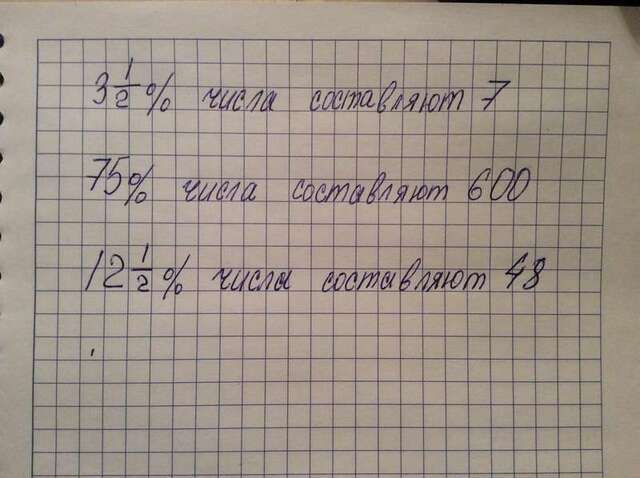 3 1/2 % числа составляют 7
75% числа составляют 600
12 1/2 % числа составляют 48